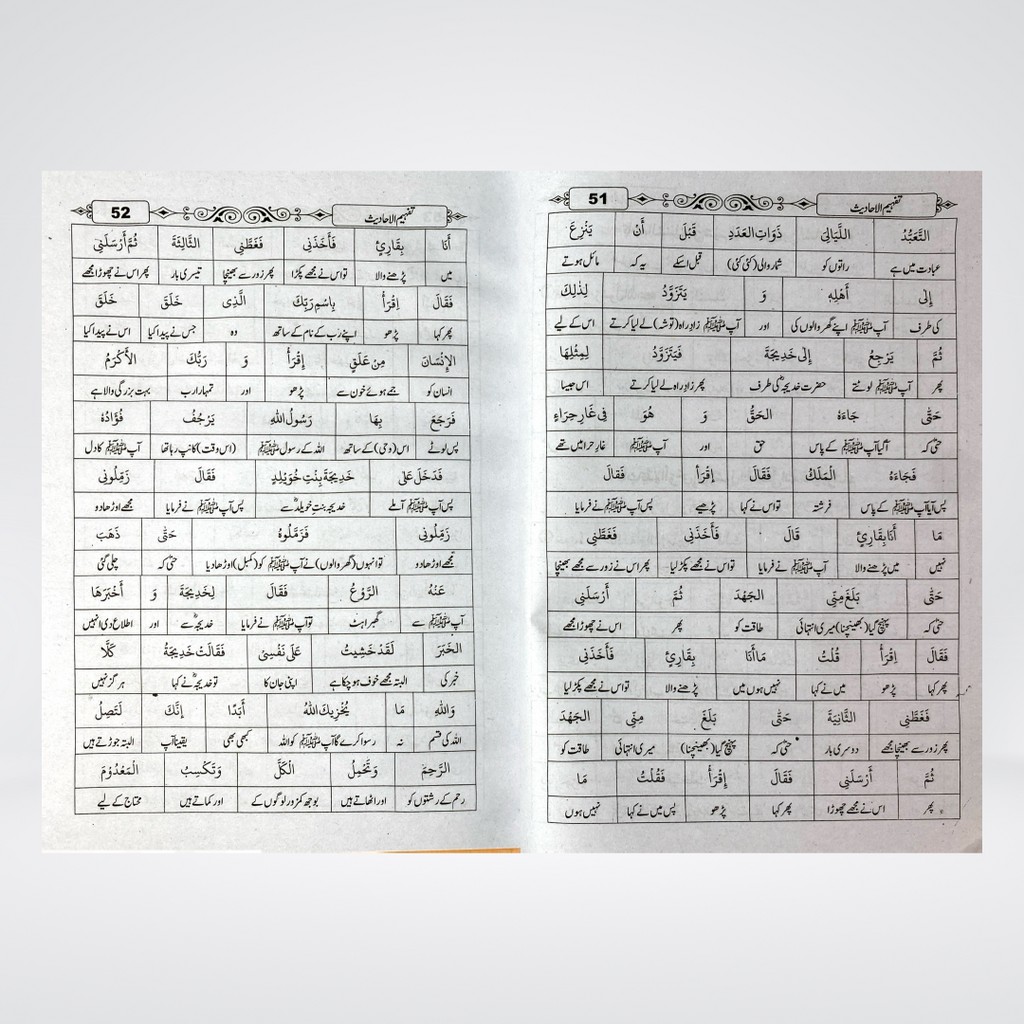 51
تفہیم الاحادیث
التَّعَبُّدُ اللَّيَالِيَ ذَوَاتِ العَدَدِ قَبْلَ أَنْ يَنْزِعَ
عبادت میں ہے راتوں کو شمار والی (کئی کئی) قبل اسکے یہ کہ مائل ہوتے
إِلَى أَهْلِهِ وَ يَتَزَوَّدُ لِذَلِكَ
کی طرف آپ ﷺ اپنے گھر والوں کی اور آپ ﷺ زادِ راہ (توشہ) لے لیا کرتے اس کے لیے
ثُمَّ يَرْجِعُ إِلَى خَدِيجَةَ فَيَتَزَوَّدُ لِمِثْلِهَا
پھر آپ ﷺ لوٹتے حضرت خدیجہؓ کی طرف پھر زادِ راہ لے لیا کرتے اس جیسا
حَتَّى جَاءَهُ الحَقُّ وَ هُوَ فِي غَارِ حِرَاءٍ
حتیٰ کہ آگیا آپ ﷺ کے پاس حق اور آپ ﷺ غارِ حرا میں تھے
فَجَاءَهُ المَلَكُ فَقَالَ اِقْرَأْ فَقَالَ
پس آیا آپ ﷺ کے پاس فرشتہ تو اس نے کہا پڑھیے پس آپ ﷺ نے فرمایا
مَا أَنَا بِقَارِئٍ قَالَ فَأَخَذَنِي فَغَطَّنِي
نہیں میں پڑھنے والا آپ ﷺ نے فرمایا تو اس نے مجھے پکڑ لیا پھر اس نے زور سے مجھے بھینچا
حَتَّى بَلَغَ مِنِّي الجَهْدَ ثُمَّ أَرْسَلَنِي
حتیٰ کہ پہنچ گیا (بھینچنا) میری انتہائی طاقت کو پھر اس نے چھوڑا مجھے
فَقَالَ اِقْرَأْ قُلْتُ مَا أَنَا بِقَارِئٍ فَأَخَذَنِي
پھر کہا پڑھو میں نے کہا نہیں ہوں میں پڑھنے والا تو اس نے مجھے پکڑ لیا
فَغَطَّنِي الثَّانِيَةَ حَتَّى بَلَغَ مِنِّي الجَهْدَ
پھر زور سے بھینچا مجھے دوسری بار حتیٰ کہ پہنچ گیا (بھینچنا) میری انتہائی طاقت کو
ثُمَّ أَرْسَلَنِي فَقَالَ إِقْرَأْ فَقُلْتُ مَا
پھر اس نے مجھے چھوڑا پھر کہا پڑھو پس میں نے کہا نہیں ہوں
52
تفہیم الاحادیث
أَنَا بِقَارِئٍ فَأَخَذَنِي فَغَطَّنِي الثَّالِثَةَ ثُمَّ أَرْسَلَنِي
میں پڑھنے والا تو اس نے مجھے پکڑا پھر زور سے بھینچا تیسری بار پھر اس نے چھوڑا مجھے
فَقَالَ اِقْرَأْ بِاسْمِ رَبِّكَ الَّذِي خَلَقَ خَلَقَ
پھر کہا پڑھو اپنے رب کے نام کے ساتھ وہ جس نے پیدا کیا اس نے پیدا کیا
الإِنْسَانَ مِنْ عَلَقٍ إِقْرَأْ وَ رَبُّكَ الأَكْرَمُ
انسان کو جمے ہوئے خون سے پڑھو اور تمہارا رب بہت بزرگی والا ہے
فَرَجَعَ بِهَا رَسُولُ اللهِ يَرْجُفُ فُؤَادُهُ
پس لوٹے اس (وحی) کے ساتھ اللہ کے رسول ﷺ (اس وقت) کانپ رہا تھا آپ ﷺ کا دل
فَدَخَلَ عَلَى خَدِيجَةَ بِنْتِ خُوَيْلِدٍ فَقَالَ زَمِّلُونِي
پس آپ ﷺ آملے خدیجہ بنت خویلدؓ سے پس آپ ﷺ نے فرمایا مجھے اوڑھا دو
زَمِّلُونِي فَزَمَّلُوهُ حَتَّى ذَهَبَ
مجھے اوڑھا دو تو انہوں (گھر والوں) نے آپ ﷺ کو (کمبل) اوڑھا دیا حتیٰ کہ چلی گئی
عَنْهُ الرَّوْعُ فَقَالَ لِخَدِيجَةَ وَ أَخْبَرَهَا
آپ ﷺ سے گھبراہٹ تو آپ ﷺ نے فرمایا خدیجہؓ سے اور اطلاع دی انہیں
الخَبَرَ لَقَدْ خَشِيتُ عَلَى نَفْسِي فَقَالَتْ خَدِيجَةُ كَلَّا
خبر کی البتہ مجھے خوف ہو چکا ہے اپنی جان کا تو خدیجہؓ نے کہا ہرگز نہیں
وَاللهِ مَا يُخْزِيكَ اللهُ أَبَدًا إِنَّكَ لَتَصِلُ
اللہ کی قسم نہ رسوا کرے گا آپ ﷺ کو اللہ کبھی بھی یقیناً آپ البتہ جوڑتے ہیں
الرَّحِمَ وَتَحْمِلُ الْكَلَّ وَتَكْسِبُ الْمَعْدُوْمَ
رحم کے رشتوں کو اور اٹھاتے ہیں بوجھ کمزور لوگوں کے اور کماتے ہیں محتاج کے لیے